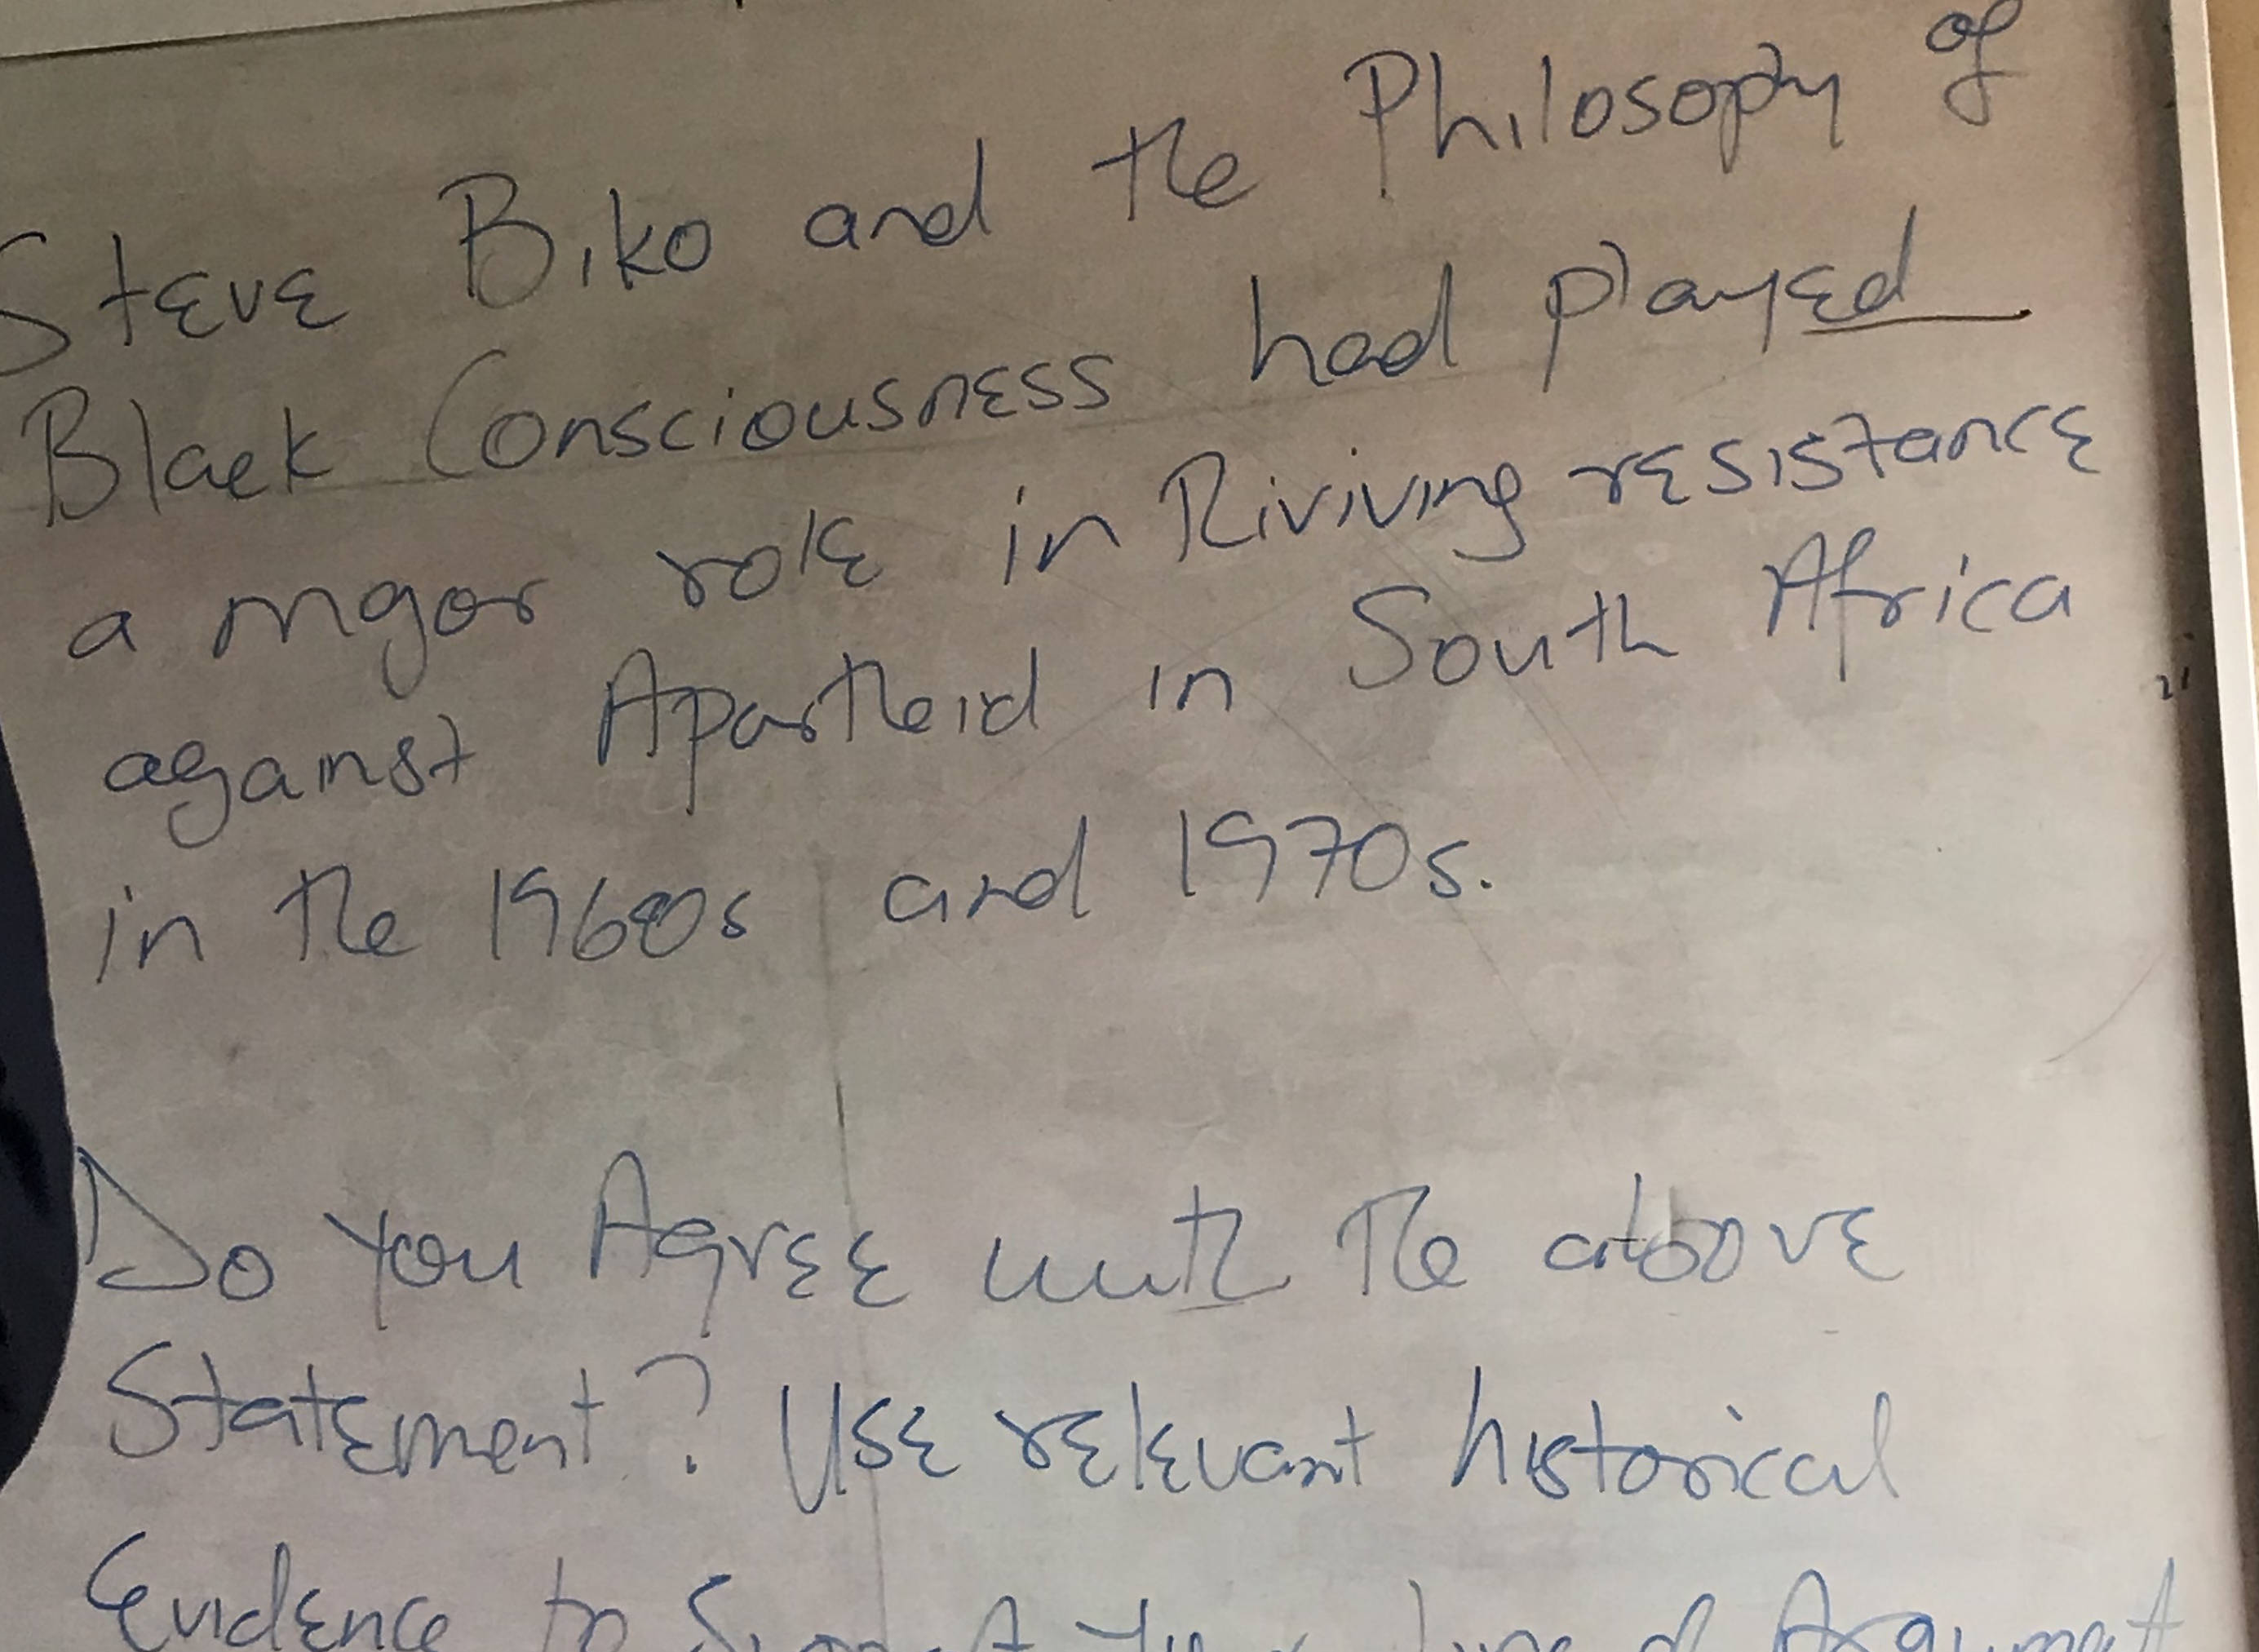 Steve Biko and the Philosophy of
Black Consciousness had played
a major role in Riviving resistance
against Apartheid in South Africa
in the 1960s and 1970s.
Do you Agree with the above
Statement? Use relevant historical
Evidence to Support your line of Argument